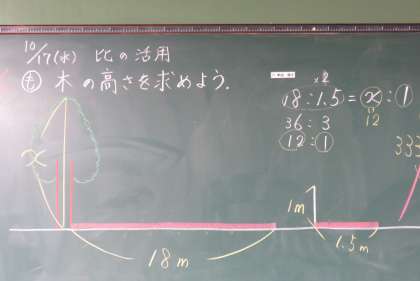 10/17(水) 比の活用
も 木の高さを求めよう.
×2
18:1.5=x:1
12
36:3
12:1
333
x
1m
18m
1.5m